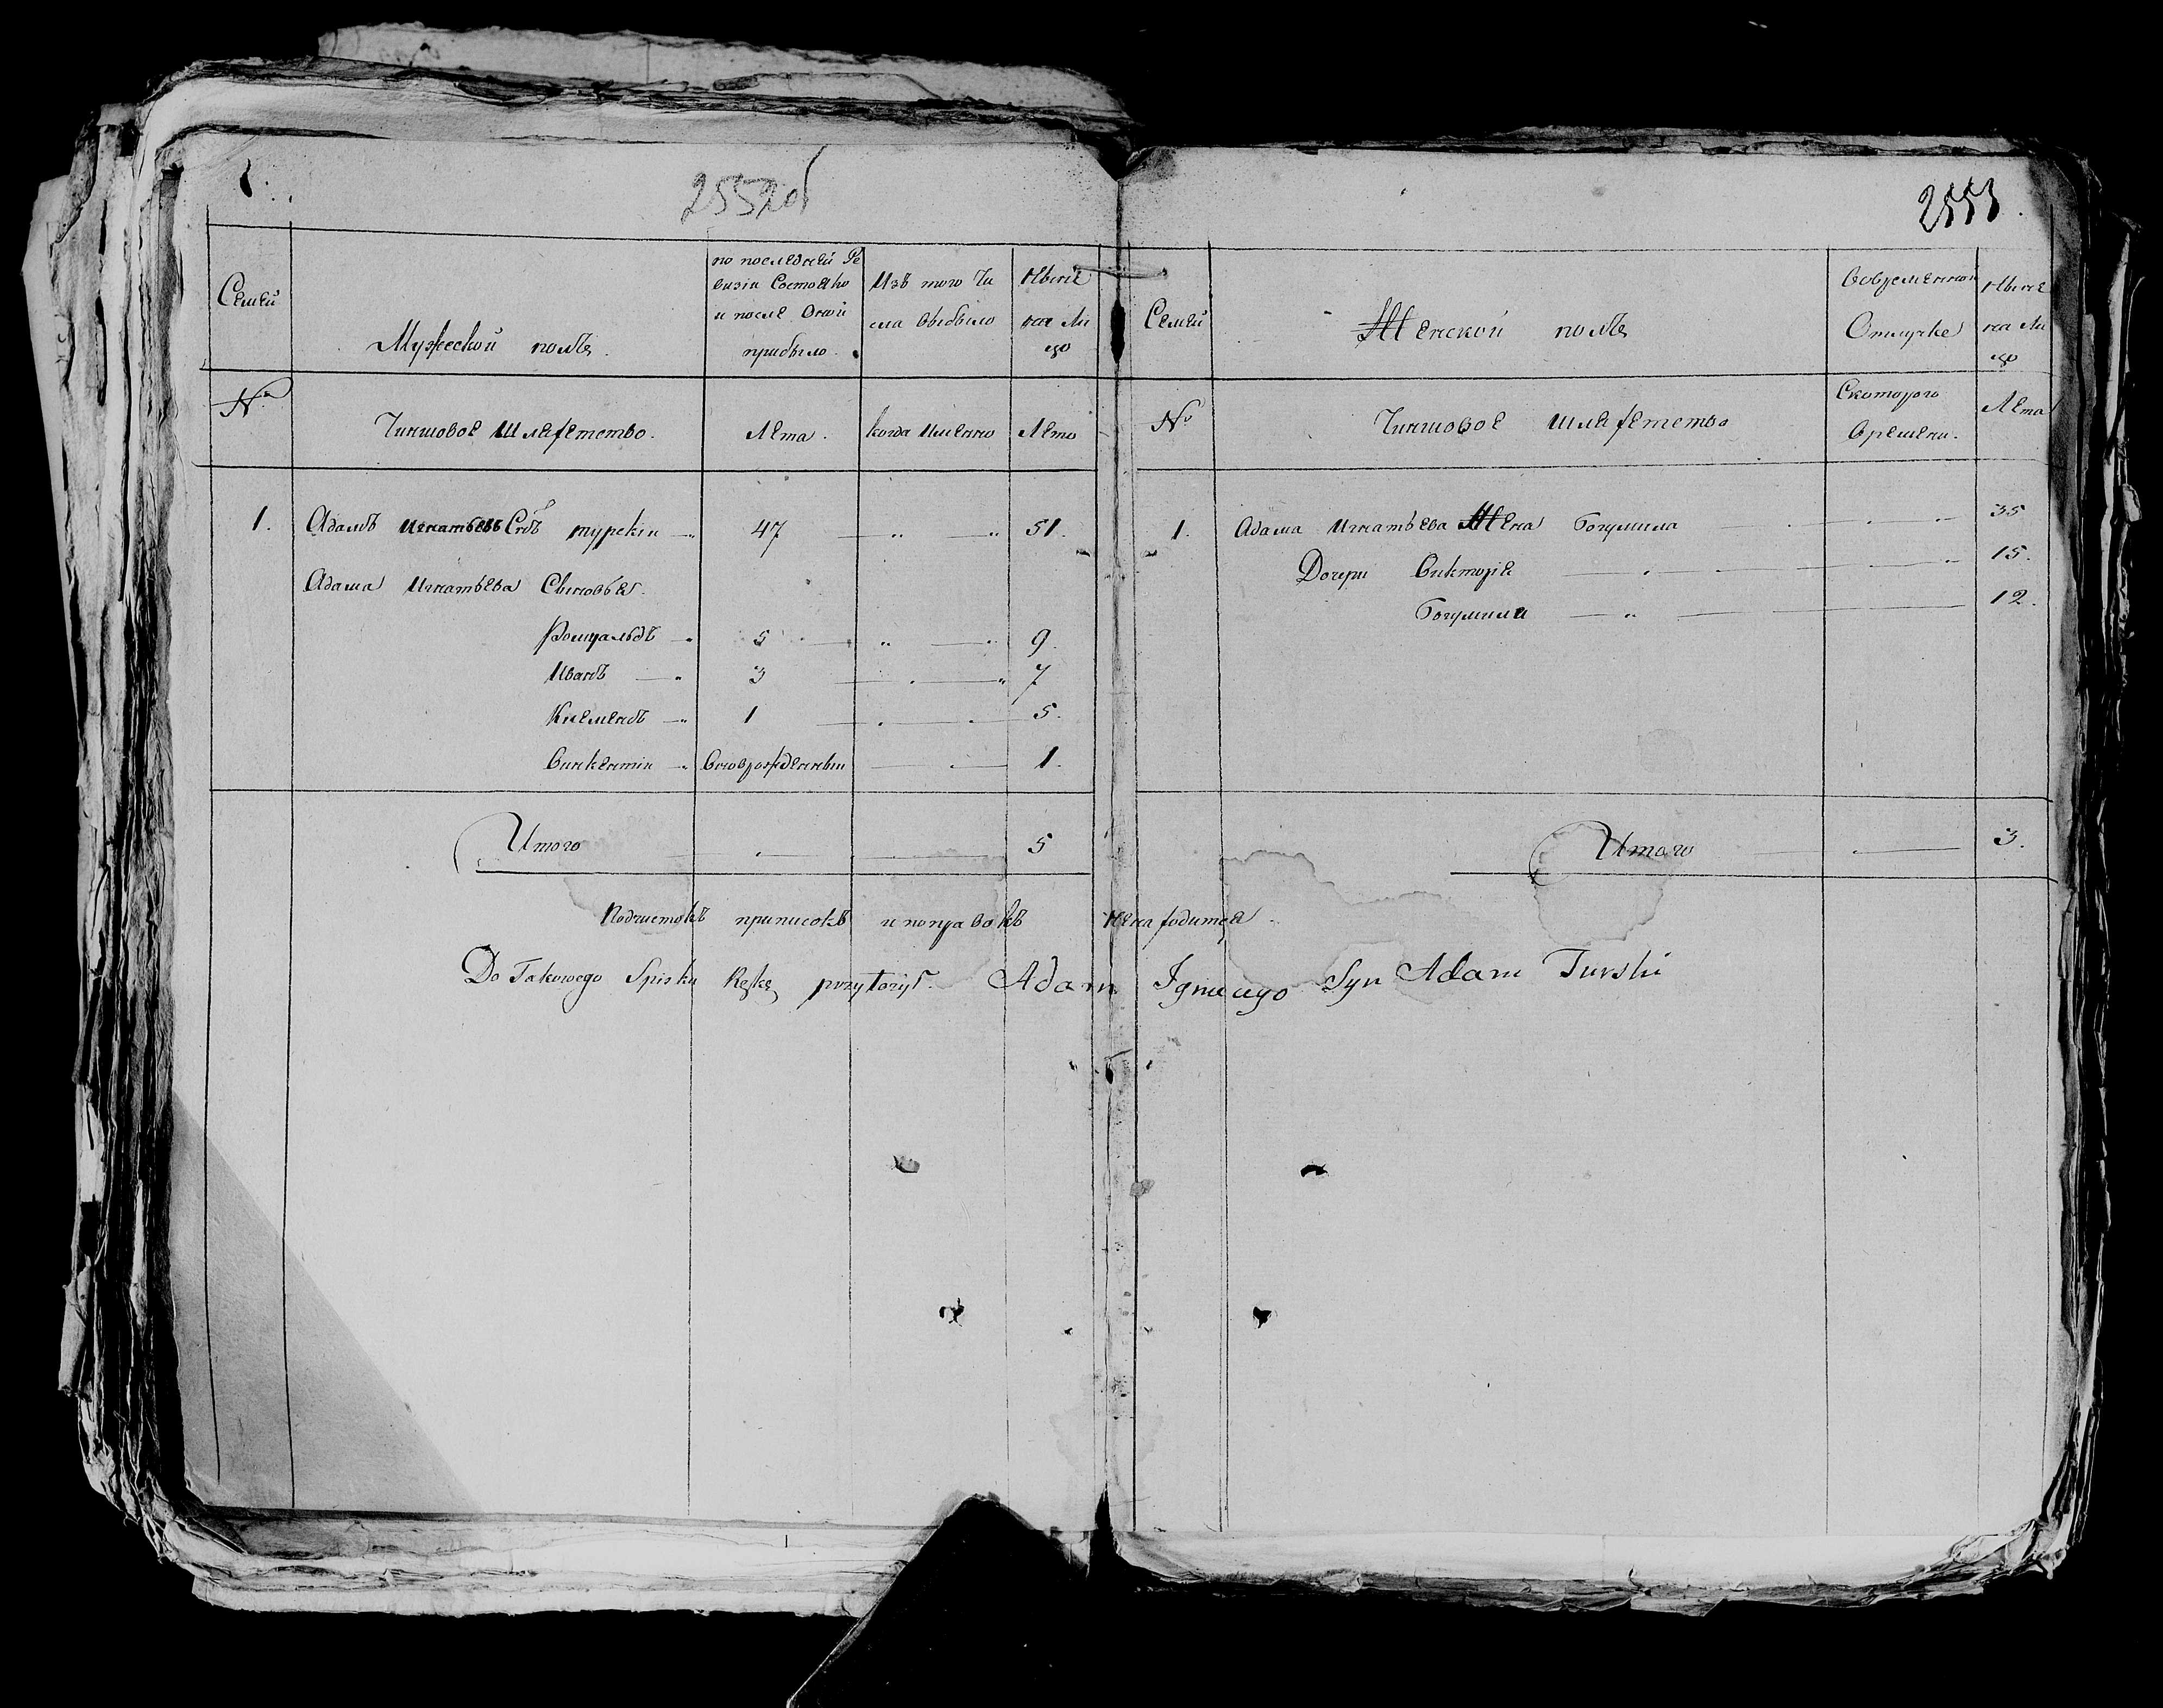 2552об
Семьи
Мужеской полъ.
по последней Ре
визіи Состояло
и после Оной
прибыло.
Изъ того Чи
сла выбыло
Ныне
на Ли
цо
№
Чиншовое Шляхетство.
Лета.
когда именно
Лето
1. Адамъ Игнатьевъ Снъ турскіи 47 51.
Адама Игнатьева Сыновья.
Ромуальдъ 5 9.
Иванъ 3 7
Клеменсъ 1 5.
Викентіи Вноврожденныи 1.
Итого 5
2553.
Семьи
Женской полъ
Вовременной
Отлучке
Ныне
на Ли
цо
№
Чиншовое шляхетство
Скоторого
Времени.
Лета
1. Адама Игнатьева Жена Богумила 35
Дочери Викторія 15.
Богумила 12.
Итого 3.
Подчистокъ приписокъ и поправокъ ненаходится.
Do Takowego Spisku Rękę przyłożył. Adam Ignacego Syn Adam Turski